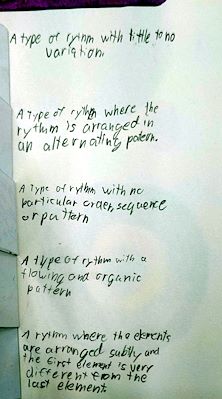 A type of rythm with little to no
variation.
A type of rythm where the
rythm is arranged in
an alternating patern.
A type of rythm with no
particular order, sequence
or pattern
A type of rythm with a
flowing and organic
pattern
A rythm where the elements
are arranged subtly and
the first element is very
different from the
last element.